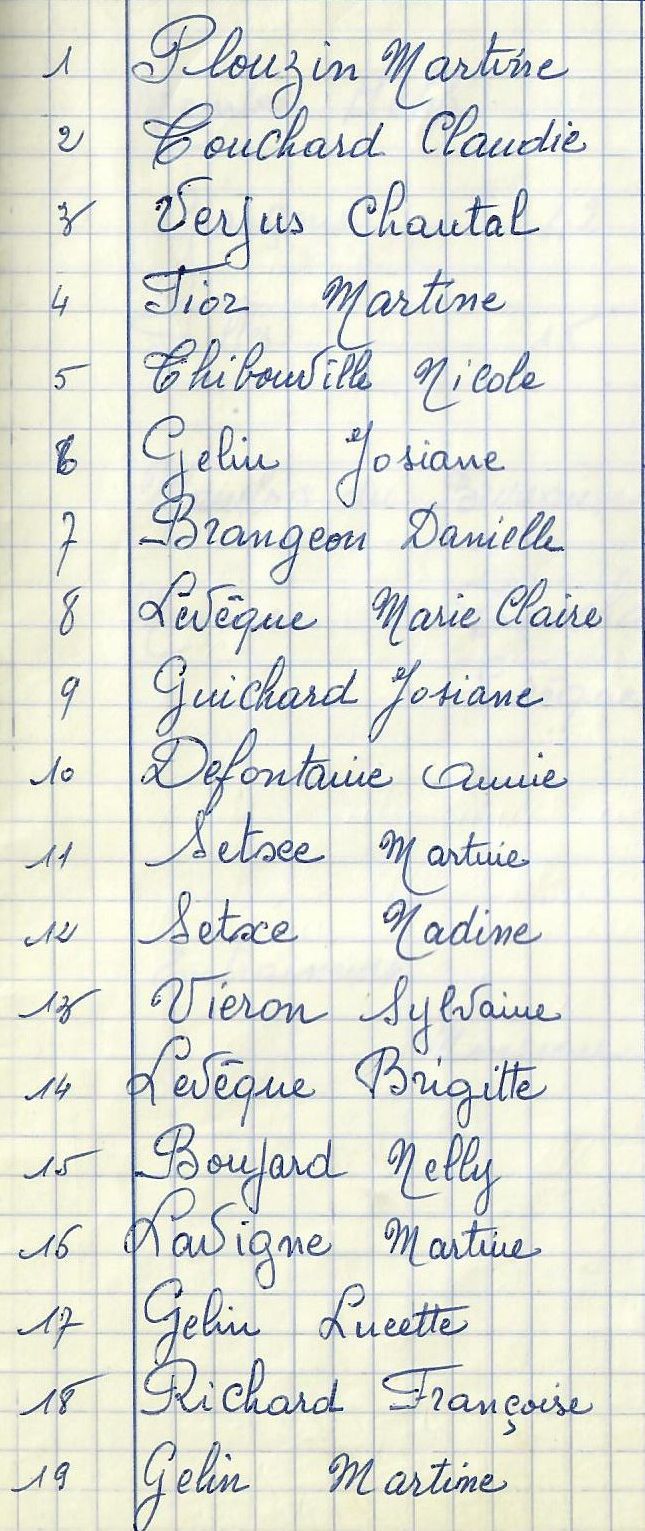 1 Plouzin Martine
2 Touchard Claudie
3 Verjus Chantal
4 Fior Martine
5 Thibouville Nicole
6 Gelin Josiane
7 Brangeon Danielle
8 Levêque Marie Claire
9 Guichard Josiane
10 Defontaine Annie
11 Martine
12 Nadine
13 Viéron Sylvaine
14 Levêque Brigitte
15 Boujard Nelly
16 Lavigne Martine
17 Gelin Lucette
18 Richard Françoise
19 Gelin Martine